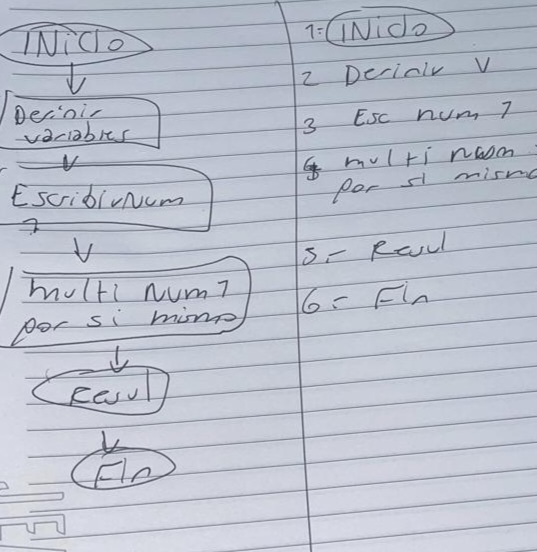 INicio
Definir
variables
Escribir Num
1
multi Num 1
por si mismo
Resul
Fin
1= INicio
2 Definir V
3 Esc num 1
4 multi num
por si mismo
5 - Resul
6 = Fin